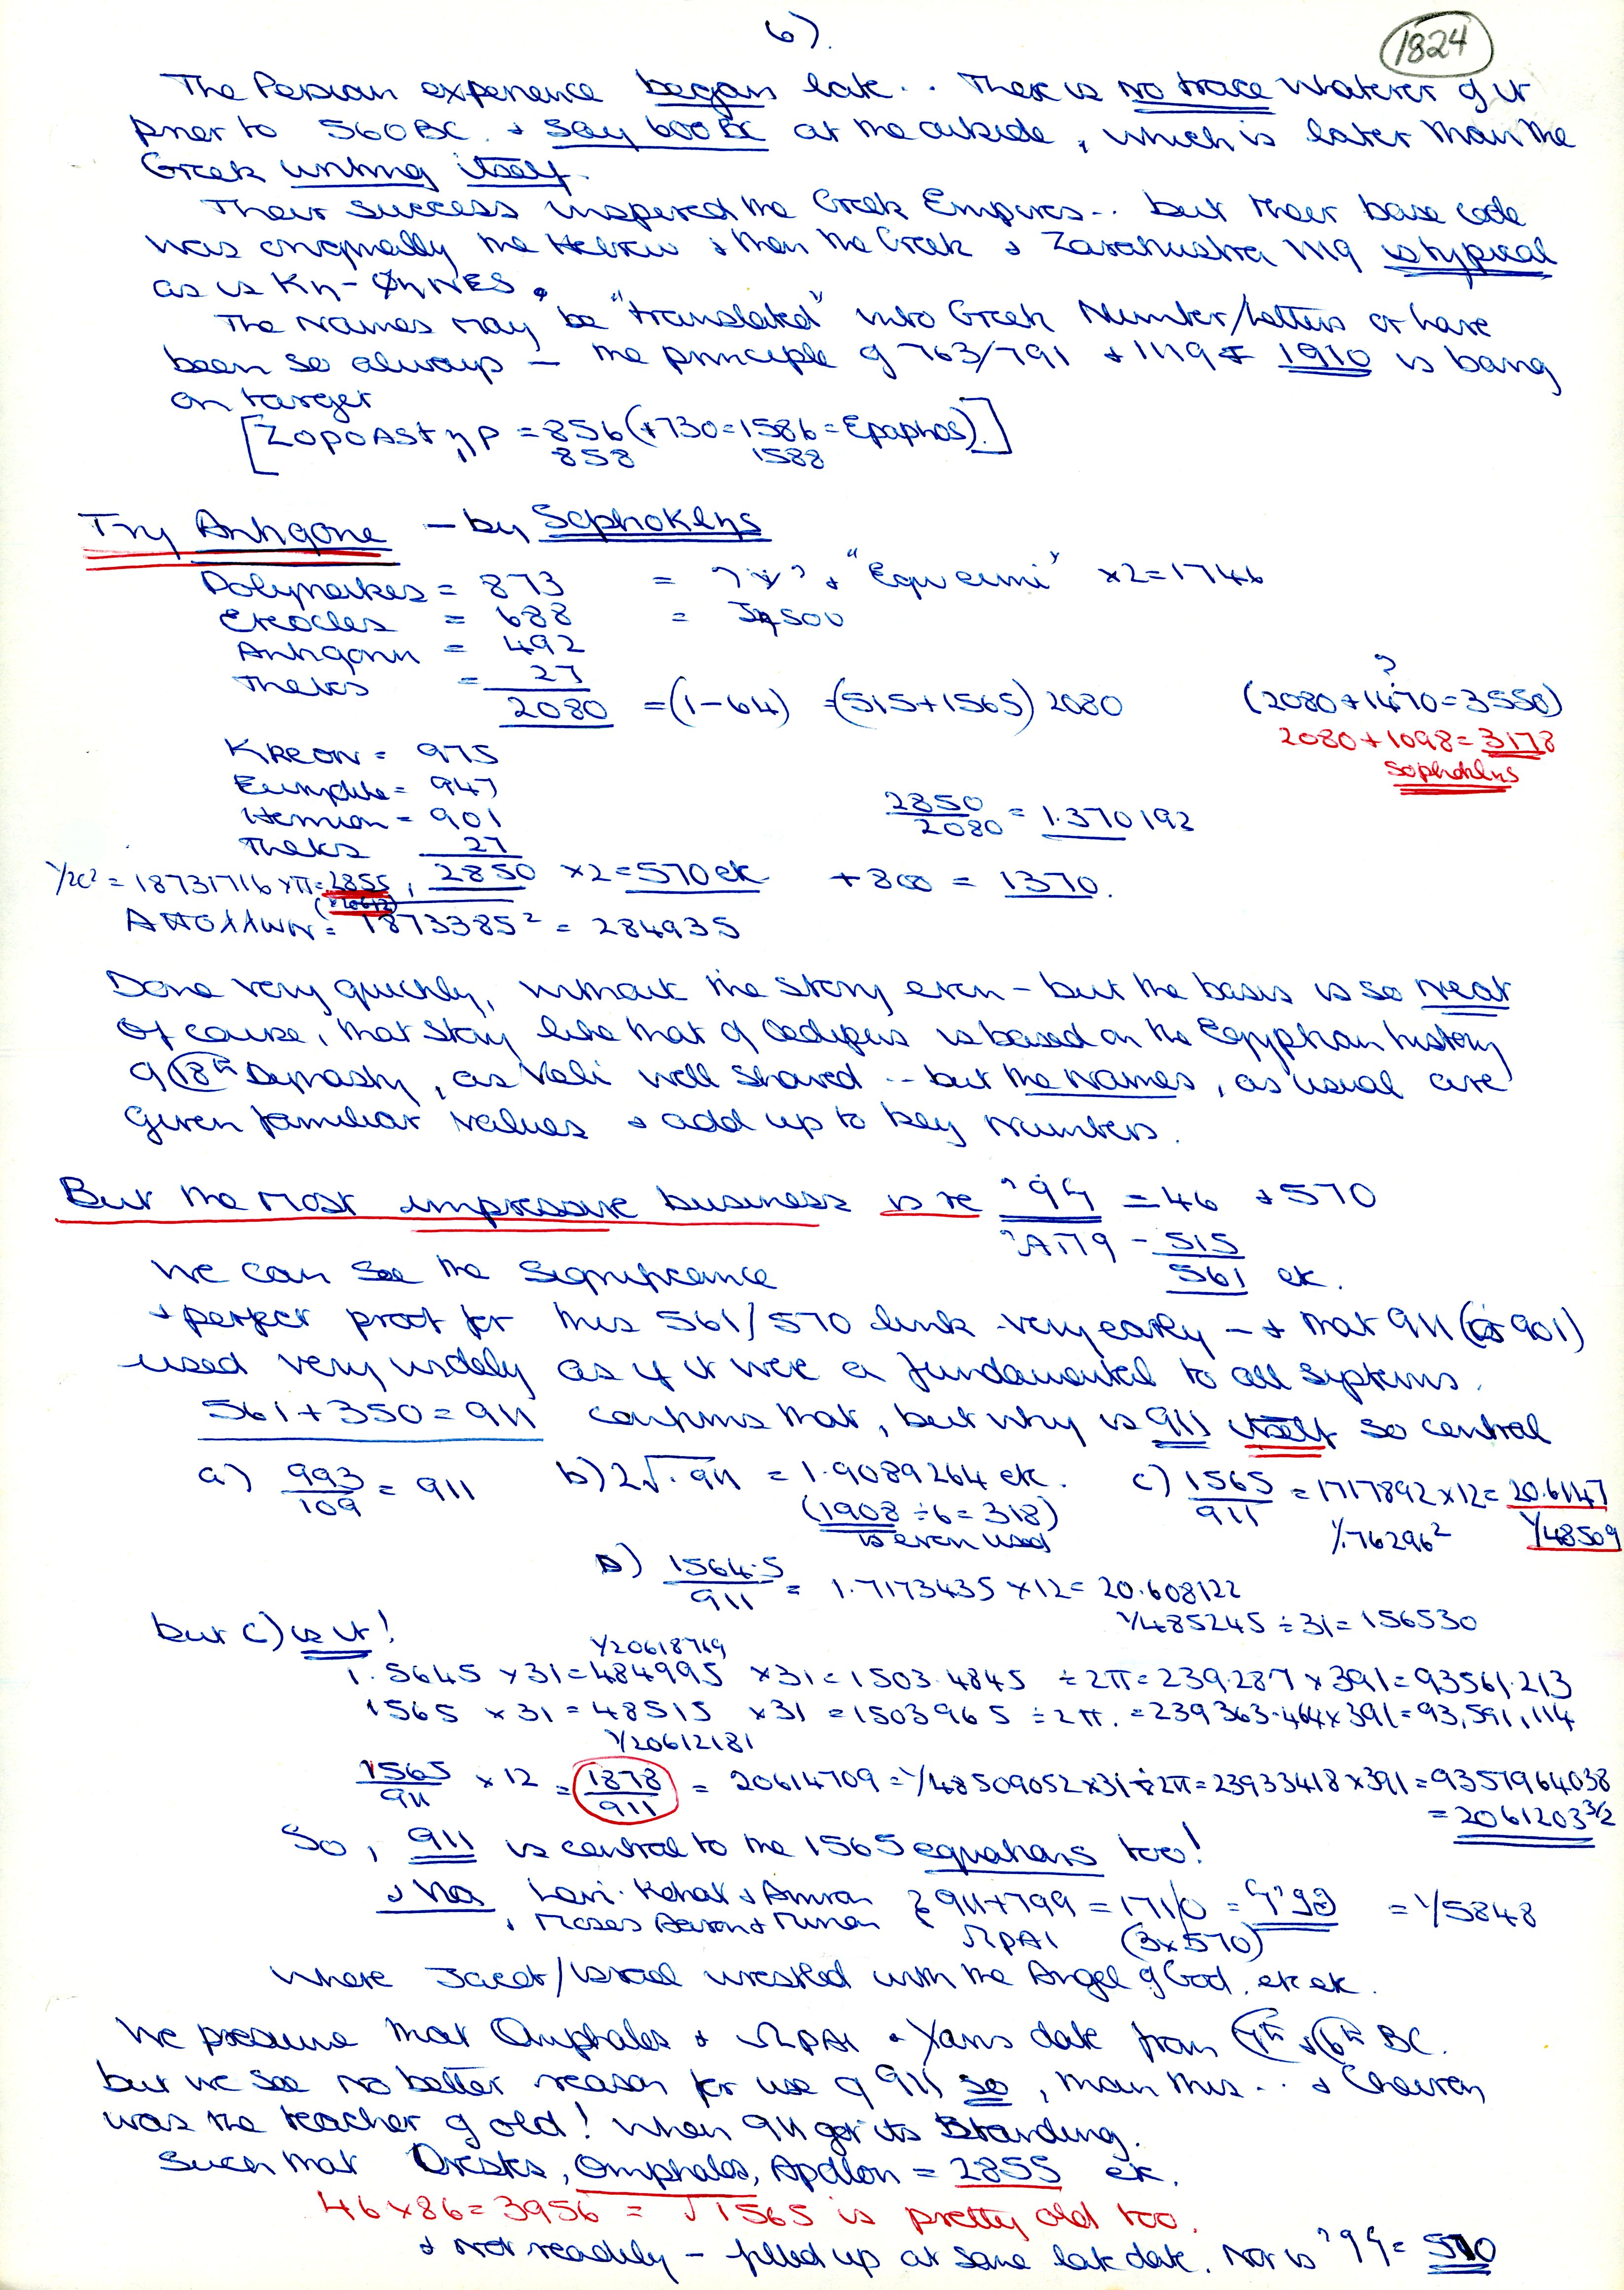 6).
1824
The Persian experience began late.. There is no trace whatever of it
prior to 560BC. + say 600BC at the outside, which is later than the
Greek writing itself.
Their success inspired the Greek Empires.. but their base code
was originally the Hebrew + then the Greek + Zarathustra 1119 is typical
as is Kη-ΦηNES.
The Names may be "translated" into Greek Number/Letters or have
been so always – the principle of 763/791 + 1119 = 1910 is bang
on target
[ZOPOASTηP = 856 (+730=1586=Epaphos).]
858 1588
Try Antigone – by SophoKlηs
Polyneikes = 873 = "Equ eimi" x2=1746
Eteocles = 688 = Jason
Antigonη = 492
Theks = 27
2080 =(1-64) =(515+1565) 2080 (2080+1470=3550) ?
2080+1098=3178
Sophoklηs
KREON = 975
Eurydike = 947
Hemion = 901
Theks 27
2850/2080 = 1.370192
1/2c² = 18731716 xπ=2855, 2850 x2=570 etc +800 = 1370.
AΠOλλωN = 1873385² = 284935
Done very quickly, without the story even – but the basis is so neat
Of course, that story like that of Oedipus is based on the Egyptian history
of 18th Dynasty, as Veli well shared .. but the Names, as usual are
given familiar values + add up to key numbers.
But the most impressive business is re יקץ = 46 + 570
515
561 etc.
We can see the significance
+ perfect proof for this 561/570 link very early – + that 911 (or 901)
used very widely as if it were a fundamental to all systems.
561+350=911 confirms that, but why is 911 itself so central
a) 993/109 = 911 b) 2√.911 = 1.9089264 etc. c) 1565/911 = 1717892 x12= 20.6147
(1908 ÷6=318) 1/.76296² 1/48509
is even used
D) 1564.5/911 = 1.7173435 x12= 20.608122
1/485245 ÷31= 156530
but c) is it!
1/20618769
1.5645 x31=484995 x31=1503.4845 ÷2π=239.287 x391=93561.213
1565 x31=48515 x31=1503965 ÷2π.=239363.464x391=93,591,114
1/20612181
1565/911 x12 = 1878/911 = 20614709=1/48509052x31÷2π=23933418x391=9357964038
= 2061203 3/2
So, 911 is central to the 1565 equations too!
+ via Levi. Kohat + Amram } 911+799=171/0 = = 1/5848
+ Moses Aaron + Miriam ΩPAI (3x570)
where Jacob/Israel wrestled with the Angel of God. etc etc.
We presume that Omphalos + ΩPAI + Xaris date from 7th + 6th BC.
but we see no better reason for use of 911 so, than this.. +
was the teacher of old! When 911 got its Standing.
Such that Orestes, Omphalos, Apollon = 2855 etc.
46x86=3956 = √1565 is pretty old too.
+ not readily – filled up at some late date. Nor is יקץ = 570